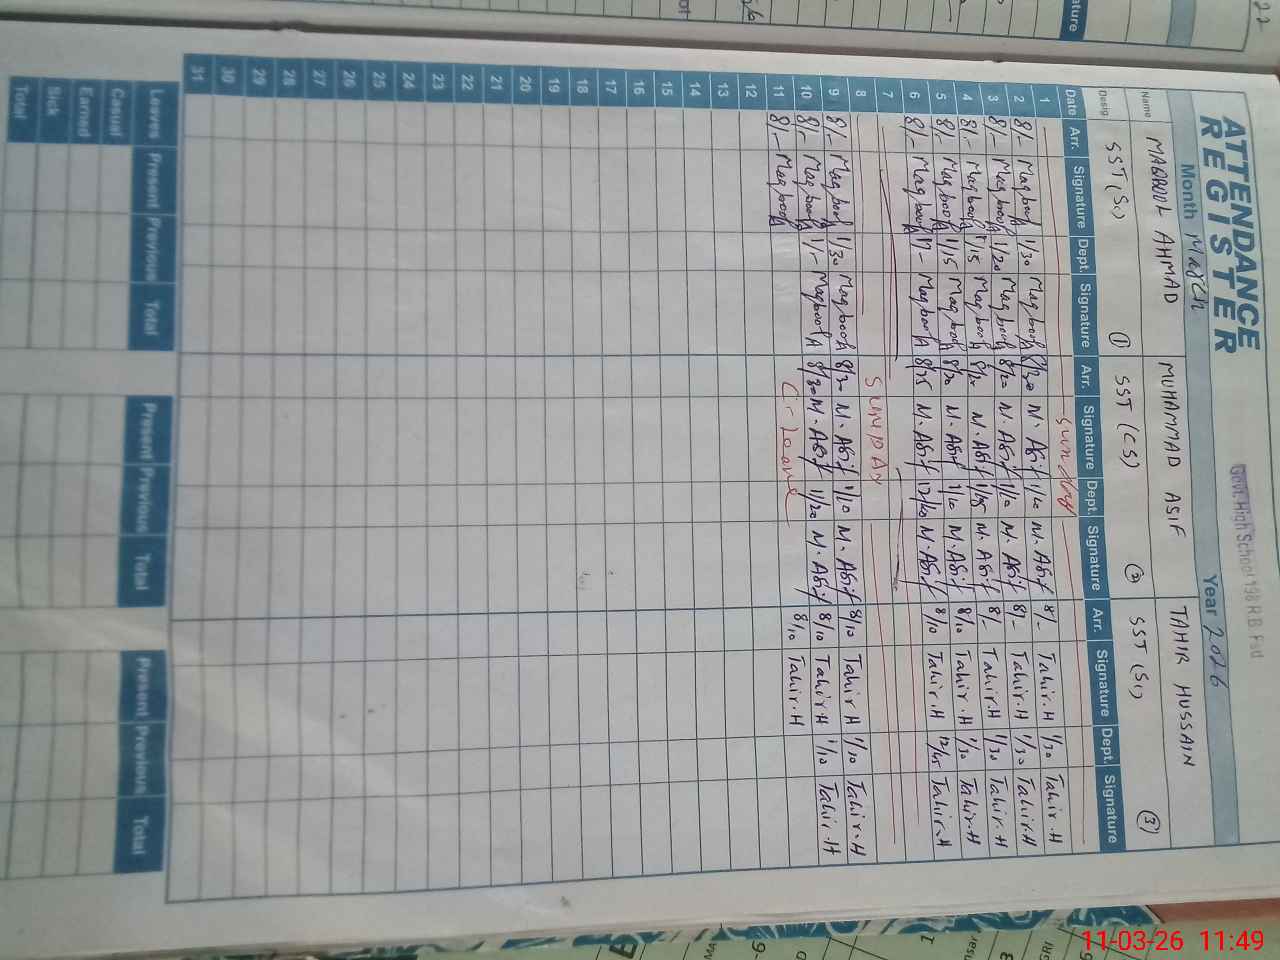 Govt. High School 198 R.B Fsd
ATTENDANCE
REGISTER
Month March Year 2026
Name MAQBOOL AHMAD MUHAMMAD ASIF TAHIR HUSSAIN
Desig SST (Sc) ① SST (CS) ② SST (Sc) ③
Date Arr. Signature Dept. Signature Arr. Signature Dept. Signature Arr. Signature Dept. Signature
1 Sunday
2 8/- Maqbool A 1/30 Maqbool A 8/30 M.Asif 1/10 M.Asif 8/- Tahir.H 1/30 Tahir.H
3 8/- Maqbool A 1/20 Maqbool A 8/20 M.Asif 1/10 M.Asif 8/- Tahir.H 1/30 Tahir.H
4 8/- Maqbool A 1/15 Maqbool A 8/20 M.Asif M.Asif 8/- Tahir.H 1/30 Tahir.H
5 8/- Maqbool A 1/15 Maqbool A 8/30 M.Asif 1/10 M.Asif 8/10 Tahir.H 1/30 Tahir.H
6 8/- Maqbool A 1/- Maqbool A 8/35 M.Asif 12/40 M.Asif 8/10 Tahir.H 12/45 Tahir.H
7
8 SUNDAY
9 8/- Maqbool A 1/30 Maqbool A 8/30 M.Asif 1/10 M.Asif 8/10 Tahir H 1/10 Tahir.H
10 8/- Maqbool A 1/- Maqbool A 8/30 M.Asif 1/20 M.Asif 8/10 Tahir.H 1/10 Tahir.H
11 8/- Maqbool A Leave 8/10 Tahir.H
12
13
14
15
16
17
18
19
20
21
22
23
24
25
26
27
28
29
30
31
Leaves Present Previous Total Present Previous Total Present Previous Total
Casual
Earned
Sick
Total
11-03-26 11:49